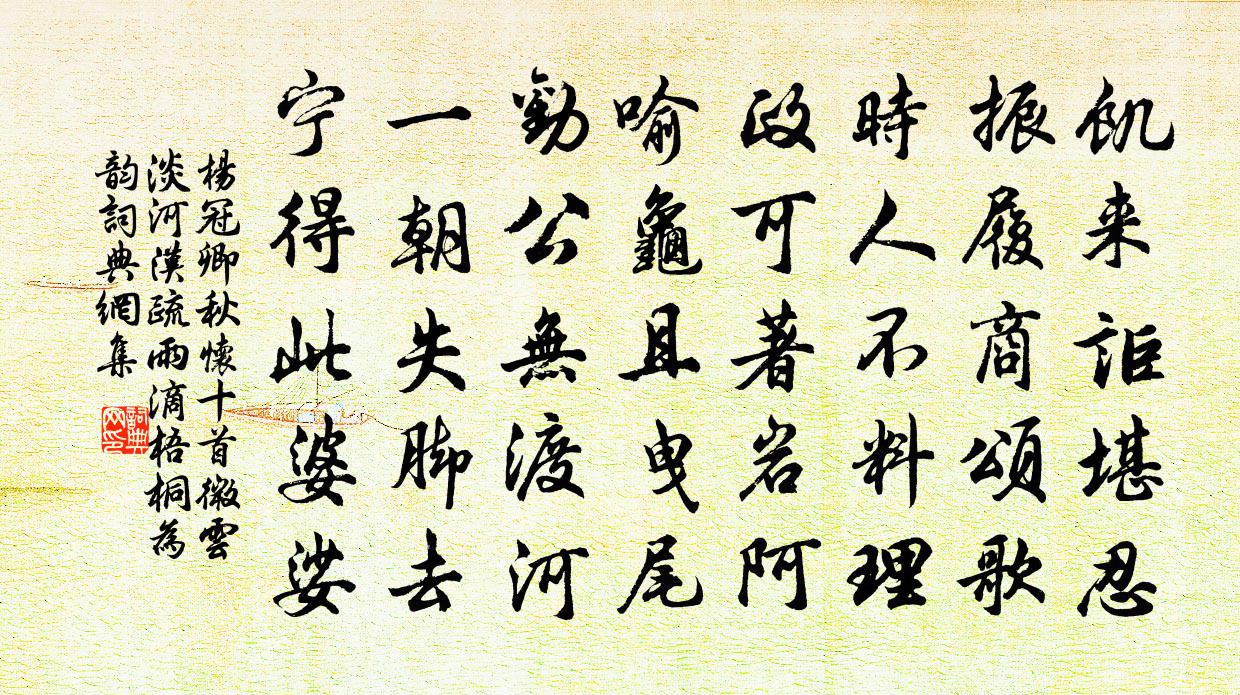 飢来詎堪忍
振履商頌歌
時人不料理
政可著岩阿
喻龜且曳尾
勸公無渡河
一朝失脚去
宁得此婆娑
楊冠卿秋懷十首微雲
淡河漢疏雨滴梧桐為
韵詞典網集
詞典網印